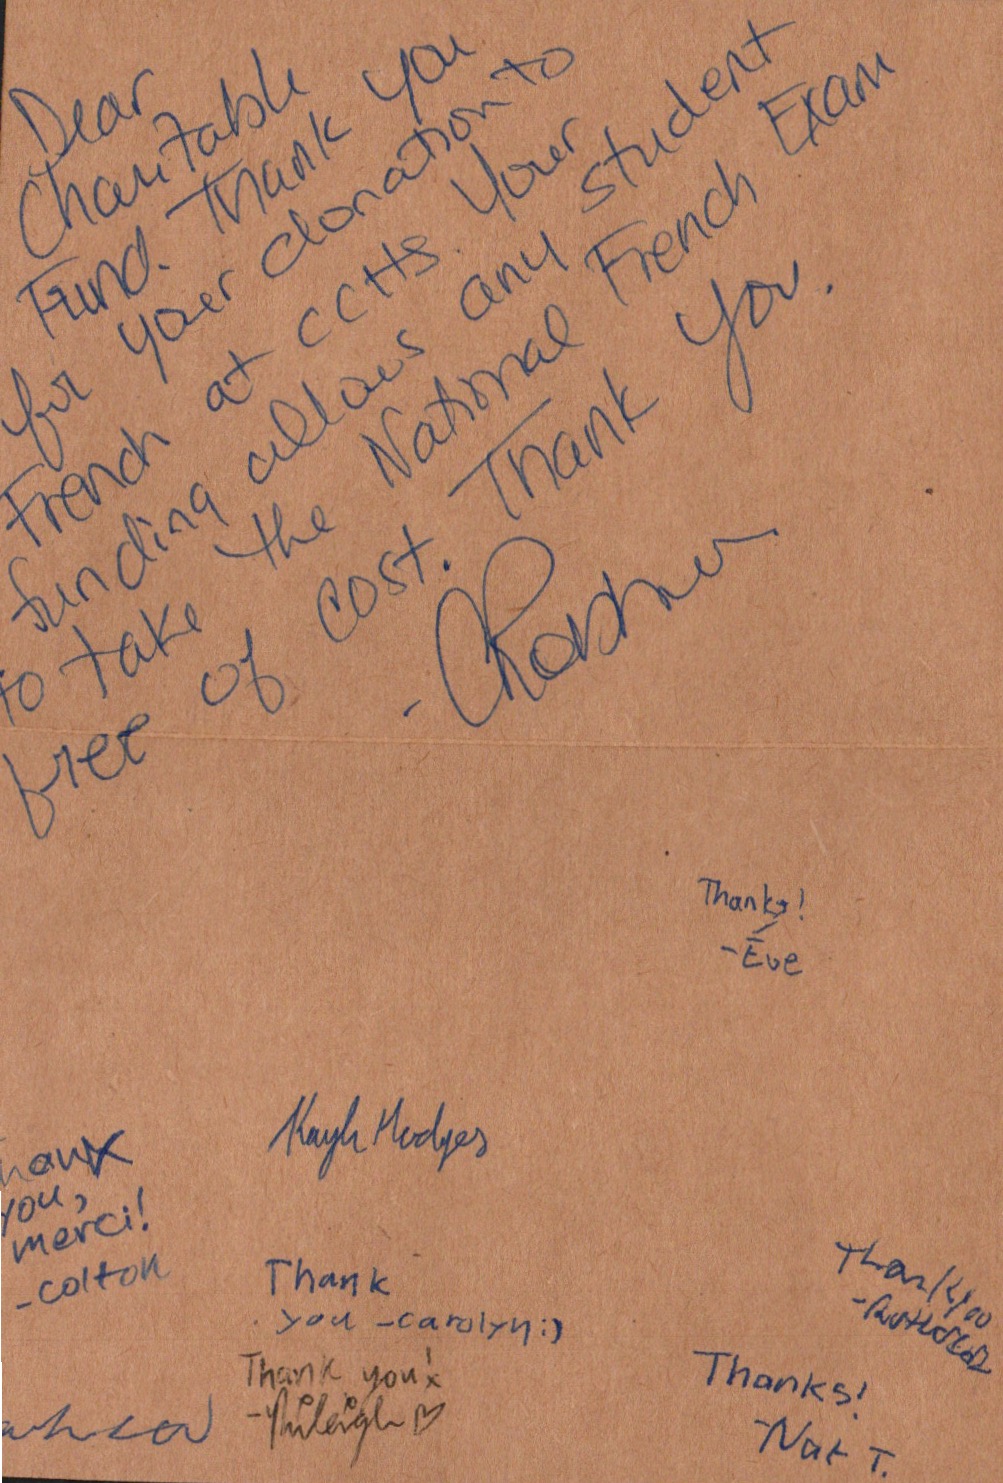 Dear
Charitable
Fund. Thank you
for your donation to
French at CCHS. Your
funding allows any student
to take the National French Exam
free of cost. Thank you.
Thanks!
-Eve
hank
you,
merci!
-colton
Kayla Hodges
Thank
you -carolyn:)
Thank you!
-Ryleigh ♡
Thank you
Thanks!
-Nat T.